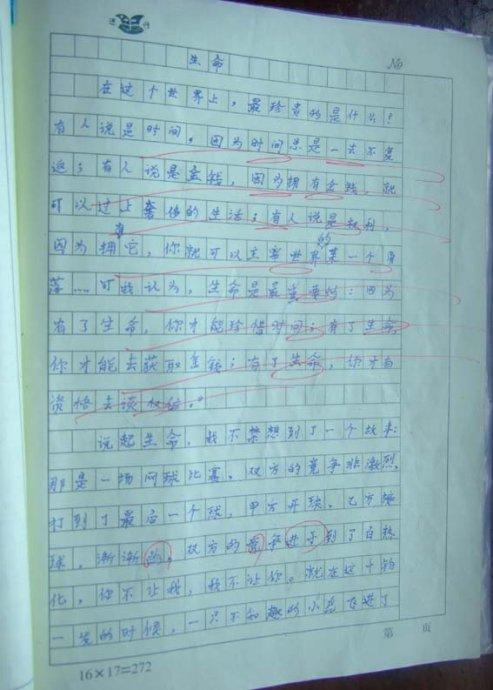 生命
No
在这个世界上，最珍贵的是什么？
有人说是时间，因为时间总是一去不复
返；有人说是金钱，因为拥有金钱，就
可以过上奢侈的生活；有人说是权利，
因为拥有它，你就可以主宰世界的某一个角
落……可我认为，生命是最重要的：因为
有了生命，你才能珍惜时间；有了生命，
你才能去获取金钱；有了生命，你才有
资格去谈权利。
说起生命，我不禁想到了一个故事：
那是一场网球比赛，双方的竞争非激烈，
打到了最后一个球，甲方开球，乙方接
球，渐渐的，双方的竞争进于到了白热
化，你不让我，我不让你。就在这千钧
一发的时候，一只不知趣的小鸟飞进了
第 页
16×17=272